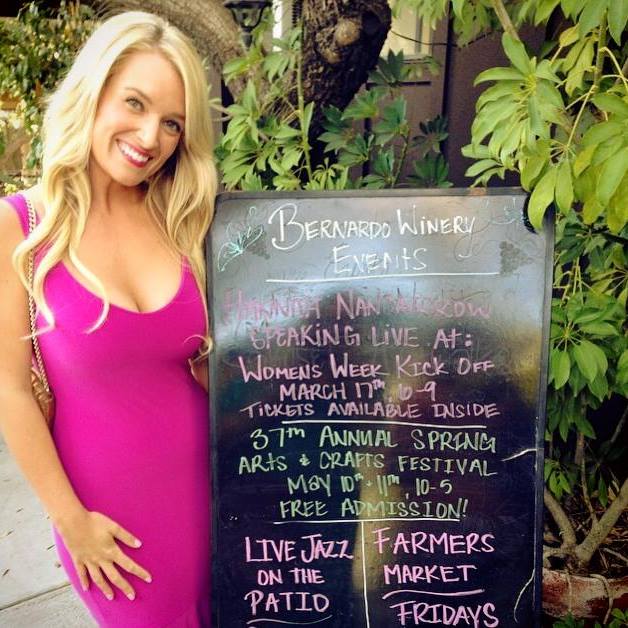 BERNARDO WINERY
EVENTS
SPEAKING LIVE AT:
WOMENS WEEK KICK OFF
MARCH 17TH, 6-9
TICKETS AVAILABLE INSIDE
37TH ANNUAL SPRING
ARTS & CRAFTS FESTIVAL
MAY 10TH + 11TH, 10-5
FREE ADMISSION!
LIVE JAZZ
ON THE
PATIO
FARMERS
MARKET
FRIDAYS